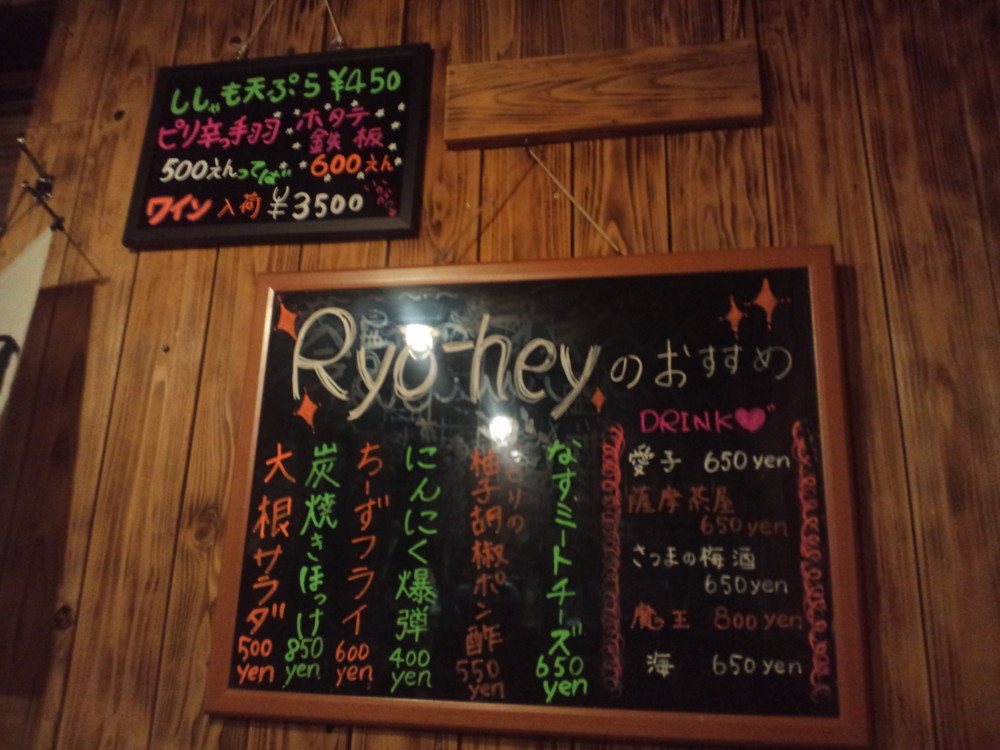 ししゃも天ぷら ¥450
ピリ辛っ手羽
500えんってば
ホタテ
鉄板
600えん
ワイン 入荷 ¥3500
Ryo-heyのおすすめ
なす、ミートチーズ 650 yen
とりの
柚子胡椒ポン酢 550 yen
にんにく爆弾 400 yen
ちーずフライ 600 yen
炭焼きほっけ 850 yen
大根サラダ 500 yen
DRINK
愛子 650 yen
薩摩茶屋
650 yen
さつまの梅酒
650 yen
魔王 800 yen
海 650 yen